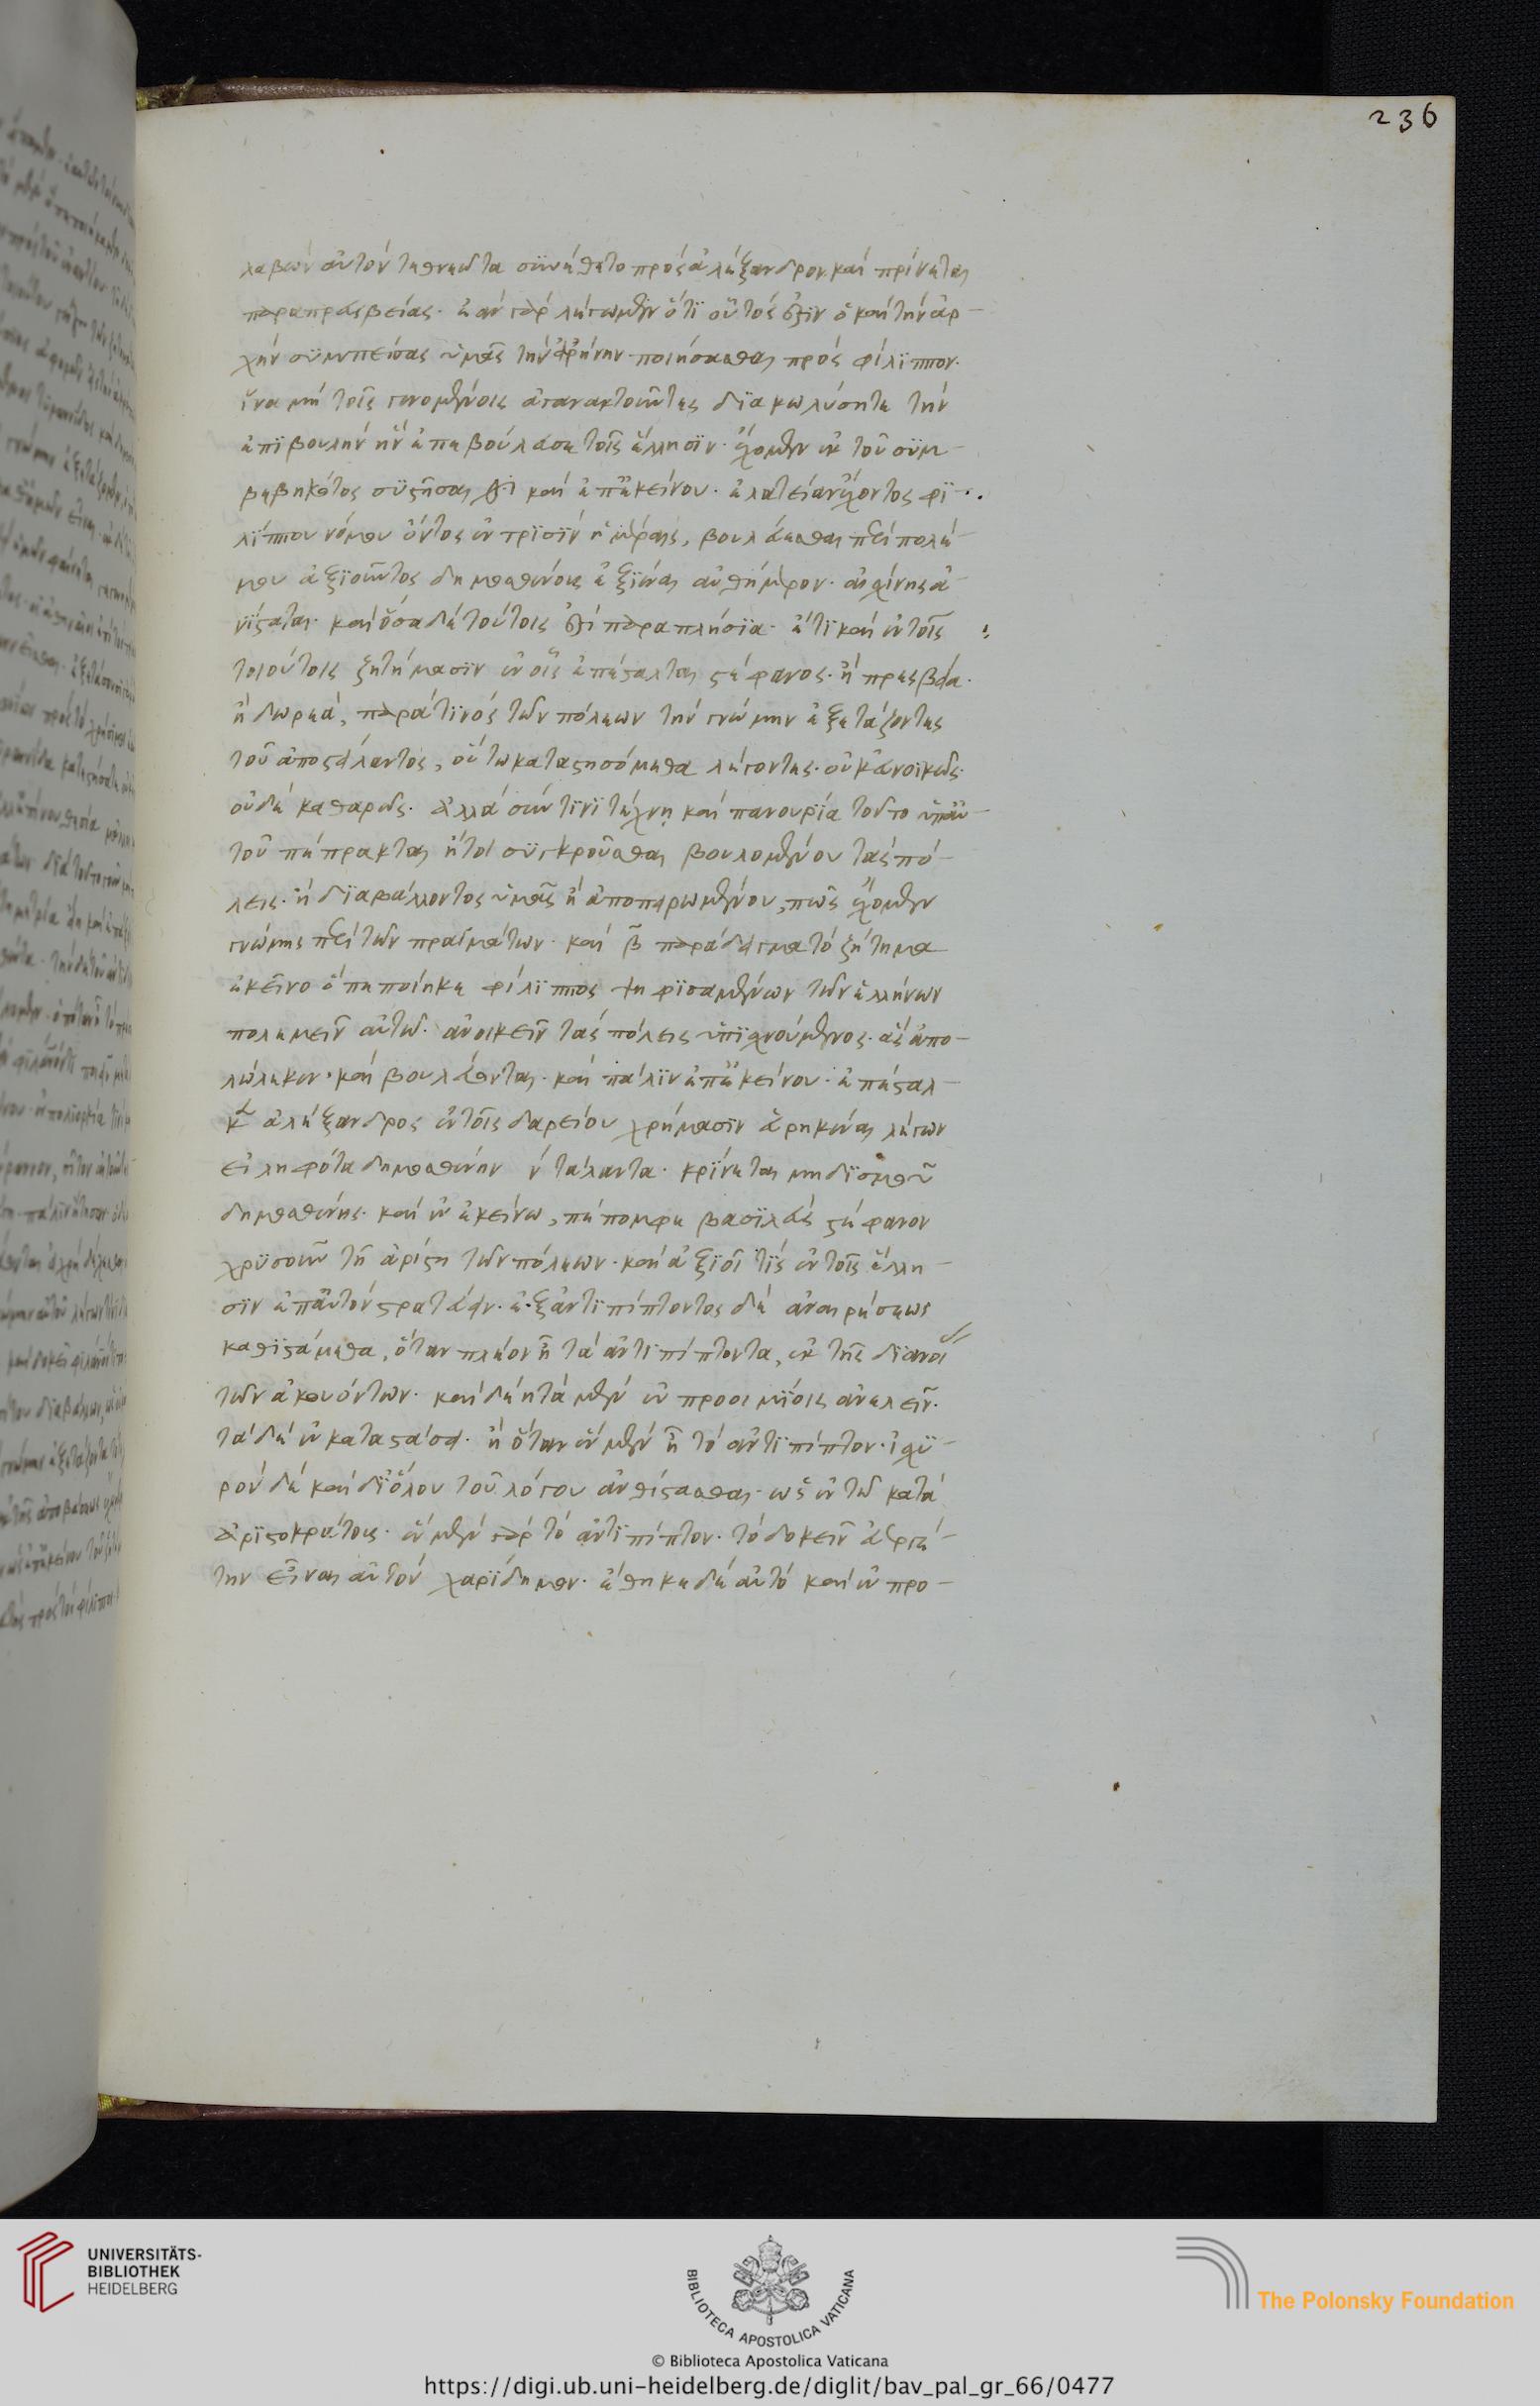 236
λαβὼν αὐτὸν τεθνεῶτα συνέθετο πρὸς ἀλέξανδρον. καὶ κρίνεται
παραπρεσβείας. ἐὰν γὰρ λέγωμεν ὅτι οὗτός ἐστιν ὁ καὶ τὴν ἀρ-
χὴν συμπείσας ὑμᾶς τὴν εἰρήνην ποιήσασθαι πρὸς φίλιππον.
ἵνα μὴ τοῖς γινομένοις ἀγανακτοῦντες διακωλύσητε τὴν
ἐπιβουλὴν ἣν ἐπεβούλευσε τοῖς ἕλλησιν. ἔχομεν ἐκ τοῦ συμ-
βεβηκότος συστῆσαι. ἔτι καὶ ἐπ' ἐκείνου. ἐλάτειαν ἔχοντος φι-
λίππου νόμου ὄντος ἐν τρισὶν ἡμέραις, βουλεύεσθαι περὶ πολέ-
μου ἀξιοῦντος δημοσθένους ἐξιέναι αὐθήμερον. αἰσχίνης ἀ-
νίσταται. καὶ ὅσα δὲ τούτοις ἐστὶ παραπλήσια. ἔτι καὶ ἐν τοῖς
τοιούτοις ζητήμασιν ἐν οἷς ἐπέσταλται στέφανος. ἢ πρεσβεία.
ἢ δωρεὰ, παρά τινος τῶν πόλεων τὴν γνώμην ἐξετάζοντες
τοῦ ἀποστείλαντος, οὕτω καταστησόμεθα λέγοντες. οὐκ εὐνοϊκῶς.
οὐδὲ καθαρῶς. ἀλλὰ σύν τινι τέχνῃ καὶ πανουργία τοῦτο ὑπ' αὐ-
τοῦ πέπρακται ἤτοι συγκροῦσθαι βουλομένου τὰς πό-
λεις. ἢ διαβάλλοντος ὑμᾶς ἢ ἀποπειρωμένου, πῶς ἔχομεν
γνώμης περὶ τῶν πραγμάτων. καὶ β παράδειγμα τὸ ζήτημα
ἐκεῖνο ὃ πεποίηκε φίλιππος ψηφισαμένων τῶν ἑλλήνων
πολεμεῖν αὐτῶ. ἀνοικεῖν τὰς πόλεις ὑπισχνούμενος. ἃς ἀπο-
λώλεκεν. καὶ βουλεύονται. καὶ πάλιν ἐπ' ἐκείνου. ἐπέσταλ-
κεν ἀλέξανδρος ἐν τοῖς δαρείου χρήμασιν εὑρηκέναι λέγων
εἰληφότα δημοσθένην ν τάλαντα. κρίνεται μηδισμοῦ
δημοσθένης. καὶ ἐν ἐκείνω, πέπομφε βασιλεὺς στέφανον
χρυσοῦν τῆ ἀρίστη τῶν πόλεων. καὶ ἀξιοῖ τίς ἐν τοῖς ἕλλη-
σιν ἐπ' αὐτὸν στρατεύειν. ἐξ ἀντιπίπτοντος δὲ ἀναιρέσεως
καθιστάμεθα, ὅταν πλέον ῆ τὰ ἀντιπίπτοντα, ἐκ τῆς διανοίας
τῶν ἀκουόντων. καὶ δέῃ τὰ μὲν ἐν προοιμίοις ἀνελεῖν.
τὰ δὲ ἐν καταστάσει. ἢ ὅταν ἓν μὲν ῆ τὸ ἀντιπίπτον. ἰσχυ-
ρὸν δὲ καὶ δι' ὅλου τοῦ λόγου ἀνθίστασθαι. ὡς ἐν τῶ κατὰ
ἀριστοκράτους. ἓν μὲν γὰρ τὸ ἀντιπίπτον. τὸ δοκεῖν εὐεργέ-
την εἶναι αὐτὸν χαρίδημον. ἔθηκε δὲ αὐτὸ καὶ ἐν προ-
UNIVERSITÄTS-
BIBLIOTHEK
HEIDELBERG
BIBLIOTECA APOSTOLICA VATICANA
The Polonsky Foundation
© Biblioteca Apostolica Vaticana
https://digi.ub.uni-heidelberg.de/diglit/bav_pal_gr_66/0477